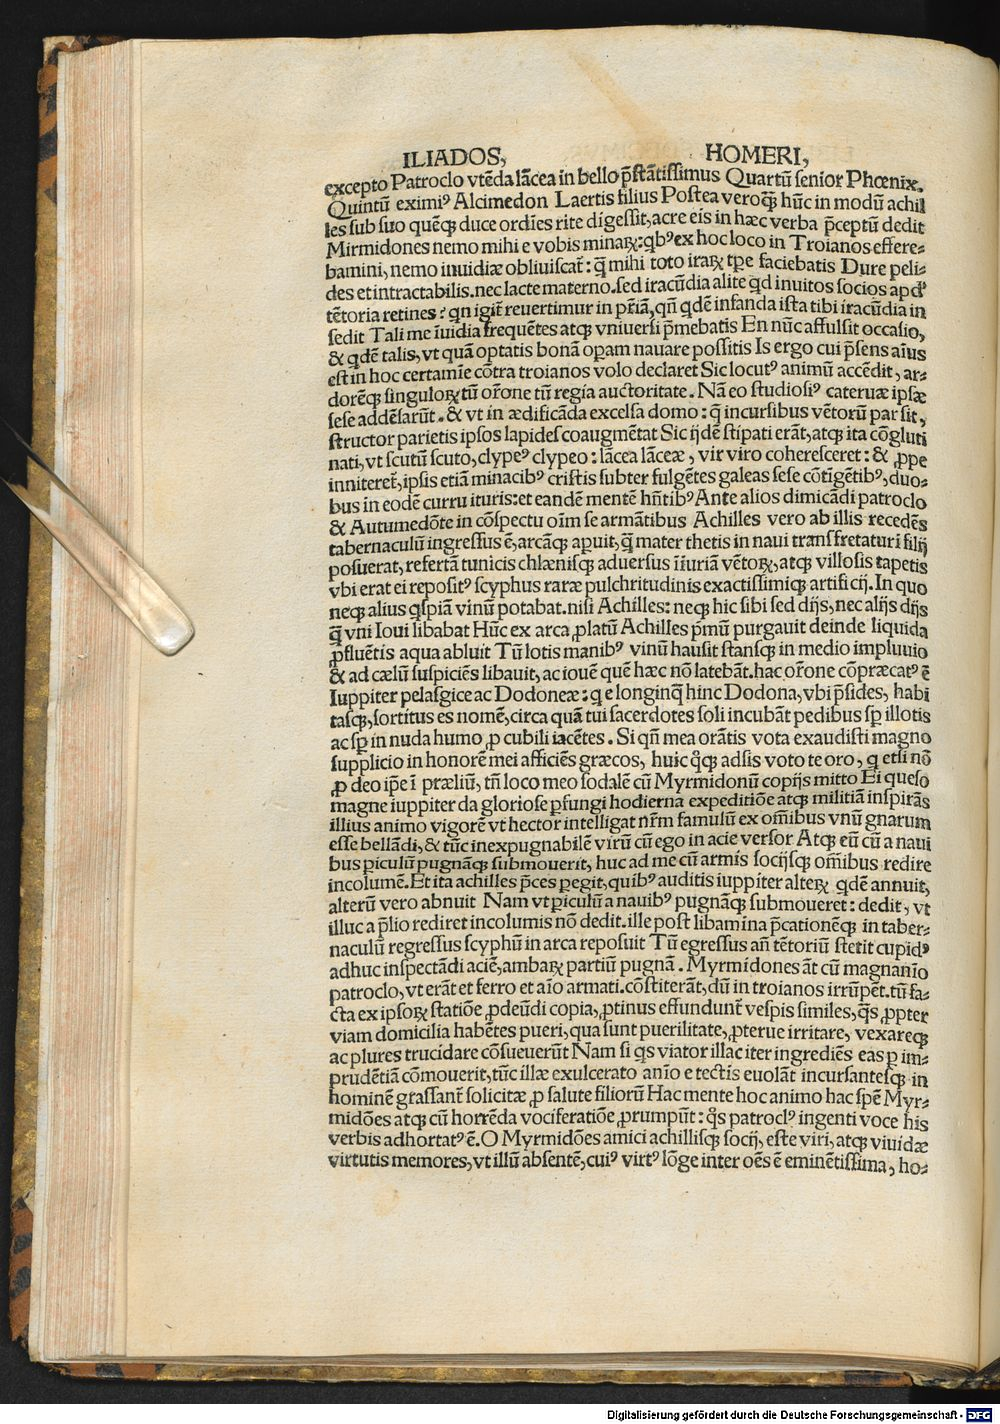 ILIADOS, HOMERI,
excepto Patroclo vtēda lācea in bello p̄stātissimus Quartū senior Phœnix.
Quintū eximiꝰ Alcimedon Laertis filius Postea veroqꝫ hūc in modū achil
les sub suo quēqꝫ duce ordīes rite digessit, acre eis in hæc verba p̄ceptū dedit
Mirmidones nemo mihi e vobis minaꝝ: qbꝰ ex hoc loco in Troianos effere-
bamini, nemo inuidiæ obliuiscat̄: q̄ mihi toto iraꝝ tp̄e faciebatis Dure peli-
des et intractabilis. nec lacte materno. sed iracūdia alite qd̓ inuitos socios apdꝰ
tētoria retines? qn igit̄ reuertimur in pr̄iā, qn̄ qdē infanda ista tibi iracūdia in
sedit Tali me īuidia frequētes atqꝫ vniuersi p̄mebatis En nūc affulsit occasio,
& qdē talis, vt quā optatis bonā opam nauare possitis Is ergo cui p̄sens aīus
est in hoc certamīe cōtra troianos volo declaret Sic locutꝰ animū accēdit, ar-
dorēqꝫ singuloꝝ tū or̄one tū regia auctoritate. Nā eo studiosiꝰ cateruæ ipsæ
sese addēsarūt. & vt in ædificāda excelsa domo: q̄ incursibus vētorū par sit,
structor parietis ipsos lapides coaugmētat Sic ijdē stipati erāt, atqꝫ ita cōgluti
nati, vt scutū scuto, clypeꝰ clypeo: lācea lāceæ, vir viro coheresceret: & ꝓpe
inniteret̄, ipsis etiā minacibꝰ cristis subter fulgētes galeas sese cōtīgētibꝰ, duo-
bus in eodē curru ituris: et eandē mentē hn̄tibꝰ Ante alios dimicādi patroclo
& Autumedōte in cōspectu oīm se armātibus Achilles vero ab illis recedēs
tabernaculū ingressus ē, arcāqꝫ apuit, q̄ mater thetis in naui transfretaturi filij
posuerat, refertā tunicis chlænisqꝫ aduersus īiuriā vētoꝝ, atqꝫ villosis tapetis
vbi erat ei repositꝰ scyphus raræ pulchritudinis exactissimiqꝫ artificij. In quo
neqꝫ alius qspiā vinū potabat. nisi Achilles: neqꝫ hic sibi sed dijs, nec alijs dijs
q̄ vni Ioui libabat Hūc ex arca ꝓlatū Achilles p̄mū purgauit deinde liquida
ꝓfluētis aqua abluit Tū lotis manibꝰ vinū hausit stansqꝫ in medio impluuio
& ad cælū suspiciēs libauit, ac iouē quē hæc nō latebāt. hac or̄one cōpræcatꝰ ē
Iuppiter pelasgice ac Dodoneæ: q e longinq̄ hinc Dodona, vbi p̄sides, habi
tasqꝫ, sortitus es nomē, circa quā tui sacerdotes soli incubāt pedibus sp̄ illotis
ac sp̄ in nuda humo ꝓ cubili iacētes. Si qn̄ mea orātis vota exaudisti magno
supplicio in honorē mei afficiēs græcos, huic q̊qꝫ adsis voto te oro, q etsi nō
ꝓ deo ip̄e ī præliū, tn̄ loco meo sodalē cū Myrmidonū copijs mitto Ei queso
magne iuppiter da gloriose ꝑfungi hodierna expeditiōe atqꝫ militiā inspirās
illius animo vigorē vt hector intelligat nr̄m famulū ex om̄ibus vnū gnarum
esse bellādi, & tūc inexpugnabilē virū cū ego in acie versor Atqꝫ eū cū a naui
bus ꝑiculū pugnāqꝫ submouerit, huc ad me cū armis socijsqꝫ om̄ibus redire
incolumē. Et ita achilles p̄ces ꝑegit, quibꝰ auditis iuppiter alteꝝ qdē annuit,
alterū vero abnuit Nam vt ꝑiculū a nauibꝰ pugnāqꝫ submoueret: dedit, vt
illuc a p̄lio rediret incolumis nō dedit. ille post libamina p̄cationēqꝫ in taber-
naculū regressus scyphū in arca reposuit Tū egressus an̄ tētoriū stetit cupidꝰ
adhuc inspectādi aciē, ambaꝝ partiū pugnā. Myrmidones āt cū magnanīo
patroclo, vt erāt et ferro et aīo armati. cōstiterāt, dū in troianos irrūpēt. tū fa-
cta ex ipsoꝝ statiōe ꝓdeūdi copia, ꝓtinus effundunt̄ vespis similes, q̄s ꝓpter
viam domicilia habētes pueri, qua sunt puerilitate, ꝓterue irritare, vexareqꝫ
ac plures trucidare cōsueuerūt Nam si qs viator illac iter ingrediēs eas ꝑ im-
prudētiā cōmouerit, tūc illæ exulcerato anīo e tectis euolāt incursantesqꝫ in
hominē grassant̄ solicitæ ꝓ salute filiorū Hac mente hoc animo hac spē Myr-
midōes atqꝫ cū horrēda vociferatiōe ꝓrumpūt: q̄s patroclꝰ ingenti voce his
verbis adhortatꝰ ē. O Myrmidōes amici achillisqꝫ socij, este viri, atqꝫ viuidæ
virtutis memores, vt illū absentē, cuiꝰ virtꝰ lōge inter oēs ē eminētissima, ho-
Digitalisierung gefördert durch die Deutsche Forschungsgemeinschaft - DFG